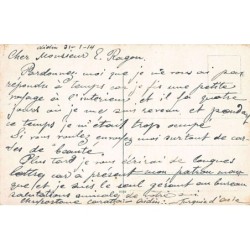 Aidin 31-1-14
Cher Monsieur E. Ragon.
Pardonnez moi que je ne vous ai pas
répondez à temps car je fis une petite
voyage à l'intérieur, et il y a quatre
jours que je me suis revenu et pendant
ce temps je n'était trop ocupé
Si vous voulez envoyez moi surtant de car-
tes de beauté
Plus tard je vous dérirai de longues
lettres car à présent mon patron
que et je suis le seul gérant au bureau
salutations
Aidin